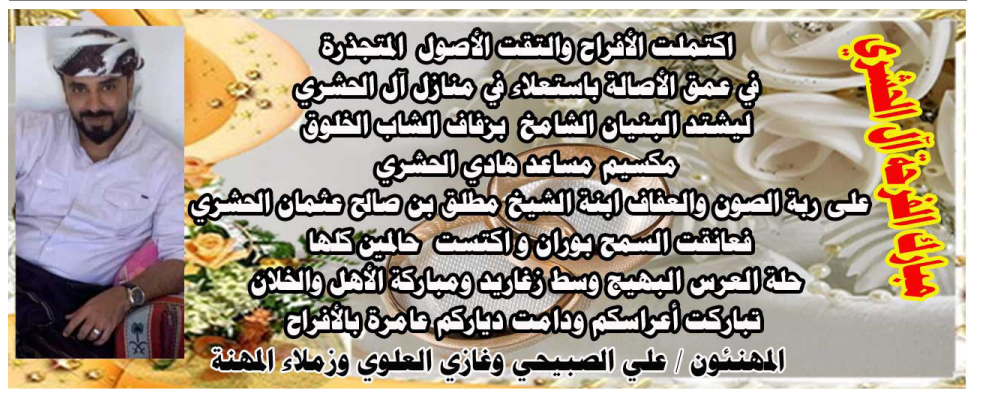 اكتملت الأفراح والتقت الأصول المتجذرة
في عمق الأصالة باستعلاء في منازل آل الحشري
ليشتد البنيان الشامخ بزفاف الشاب الخلوق
مكسيم مساعد هادي الحشري
على ربة الصون والعفاف ابنة الشيخ مطلق بن صالح عثمان الحشري
فعانقت السمح بوران و اكتست حالمين كلها
حلة العرس البهيج وسط زغاريد ومباركة الأهل والخلان
تباركت أعراسكم ودامت دياركم عامرة بالأفراح
المهنئون / علي الصبيحي وغازي العلوي وزملاء المهنة
مبارك الفرحة آل الحشري